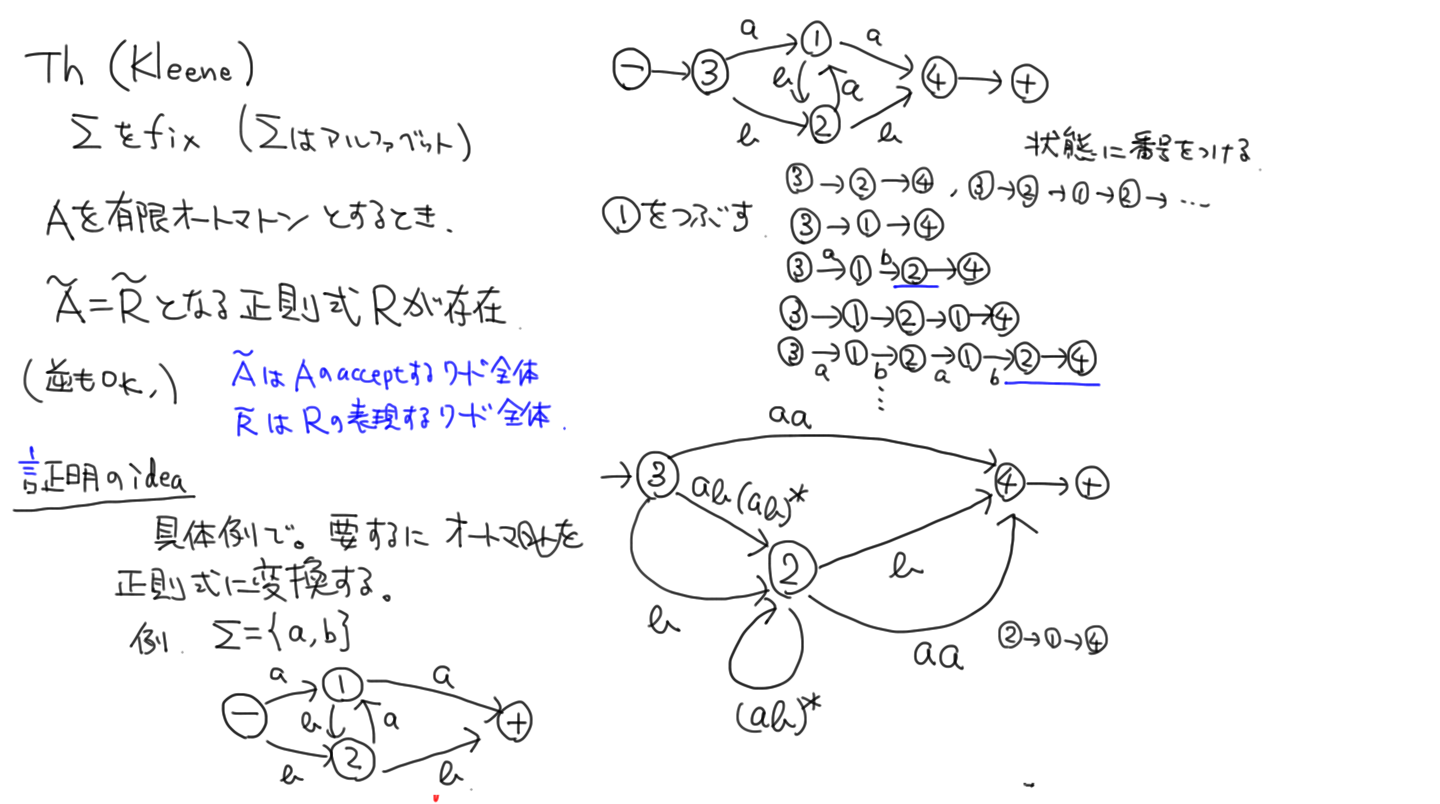 Th (Kleene)
Σをfix (Σはアルファベット)
Aを有限オートマトンとするとき.
Ã=R̃となる正則式Rが存在.
(逆もOK,)
ÃはAのacceptするワード全体
R̃はRの表現するワード全体.
証明のidea
具体例で。要するにオートマトンを
正則式に変換する。
例. Σ={a,b}
a
1
a
−
b
a
+
b
2
b
a
1
a
−
3
b
a
4
+
b
2
b
状態に番号をつける.
③→②→④, ③→②→①→②→…
①をつぶす.
③→①→④
③ a→ ① b→ ②→④
③→①→②→①→④
③→①→②→①→②→④
a b a b
⋮
aa
3
4
+
ab(ab)*
2
b
b
aa
②→①→④
(ab)*